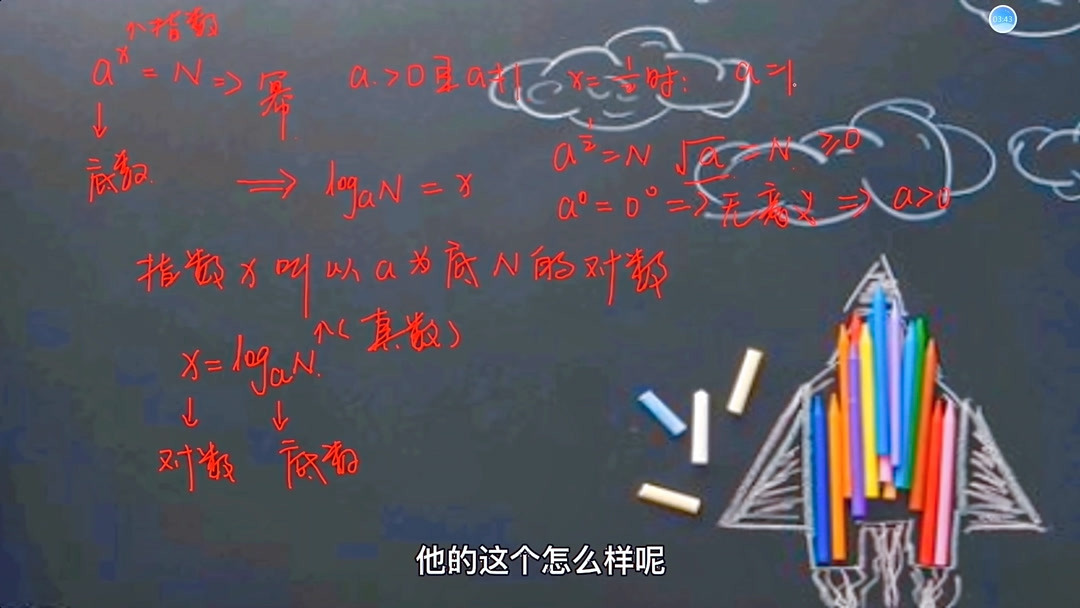 指数
a^x = N => 幂 a>0且a≠1 x=1/2时: a=1
↓
底数
a^{1/2}=N √a=N ≥0
=> log_a N = x
a^0=0^0=>无意义=>a>0
指数x叫以a为底N的对数
(真数)
x=log_a N
↓ ↓
对数 底数
他的这个怎么样呢
03:43